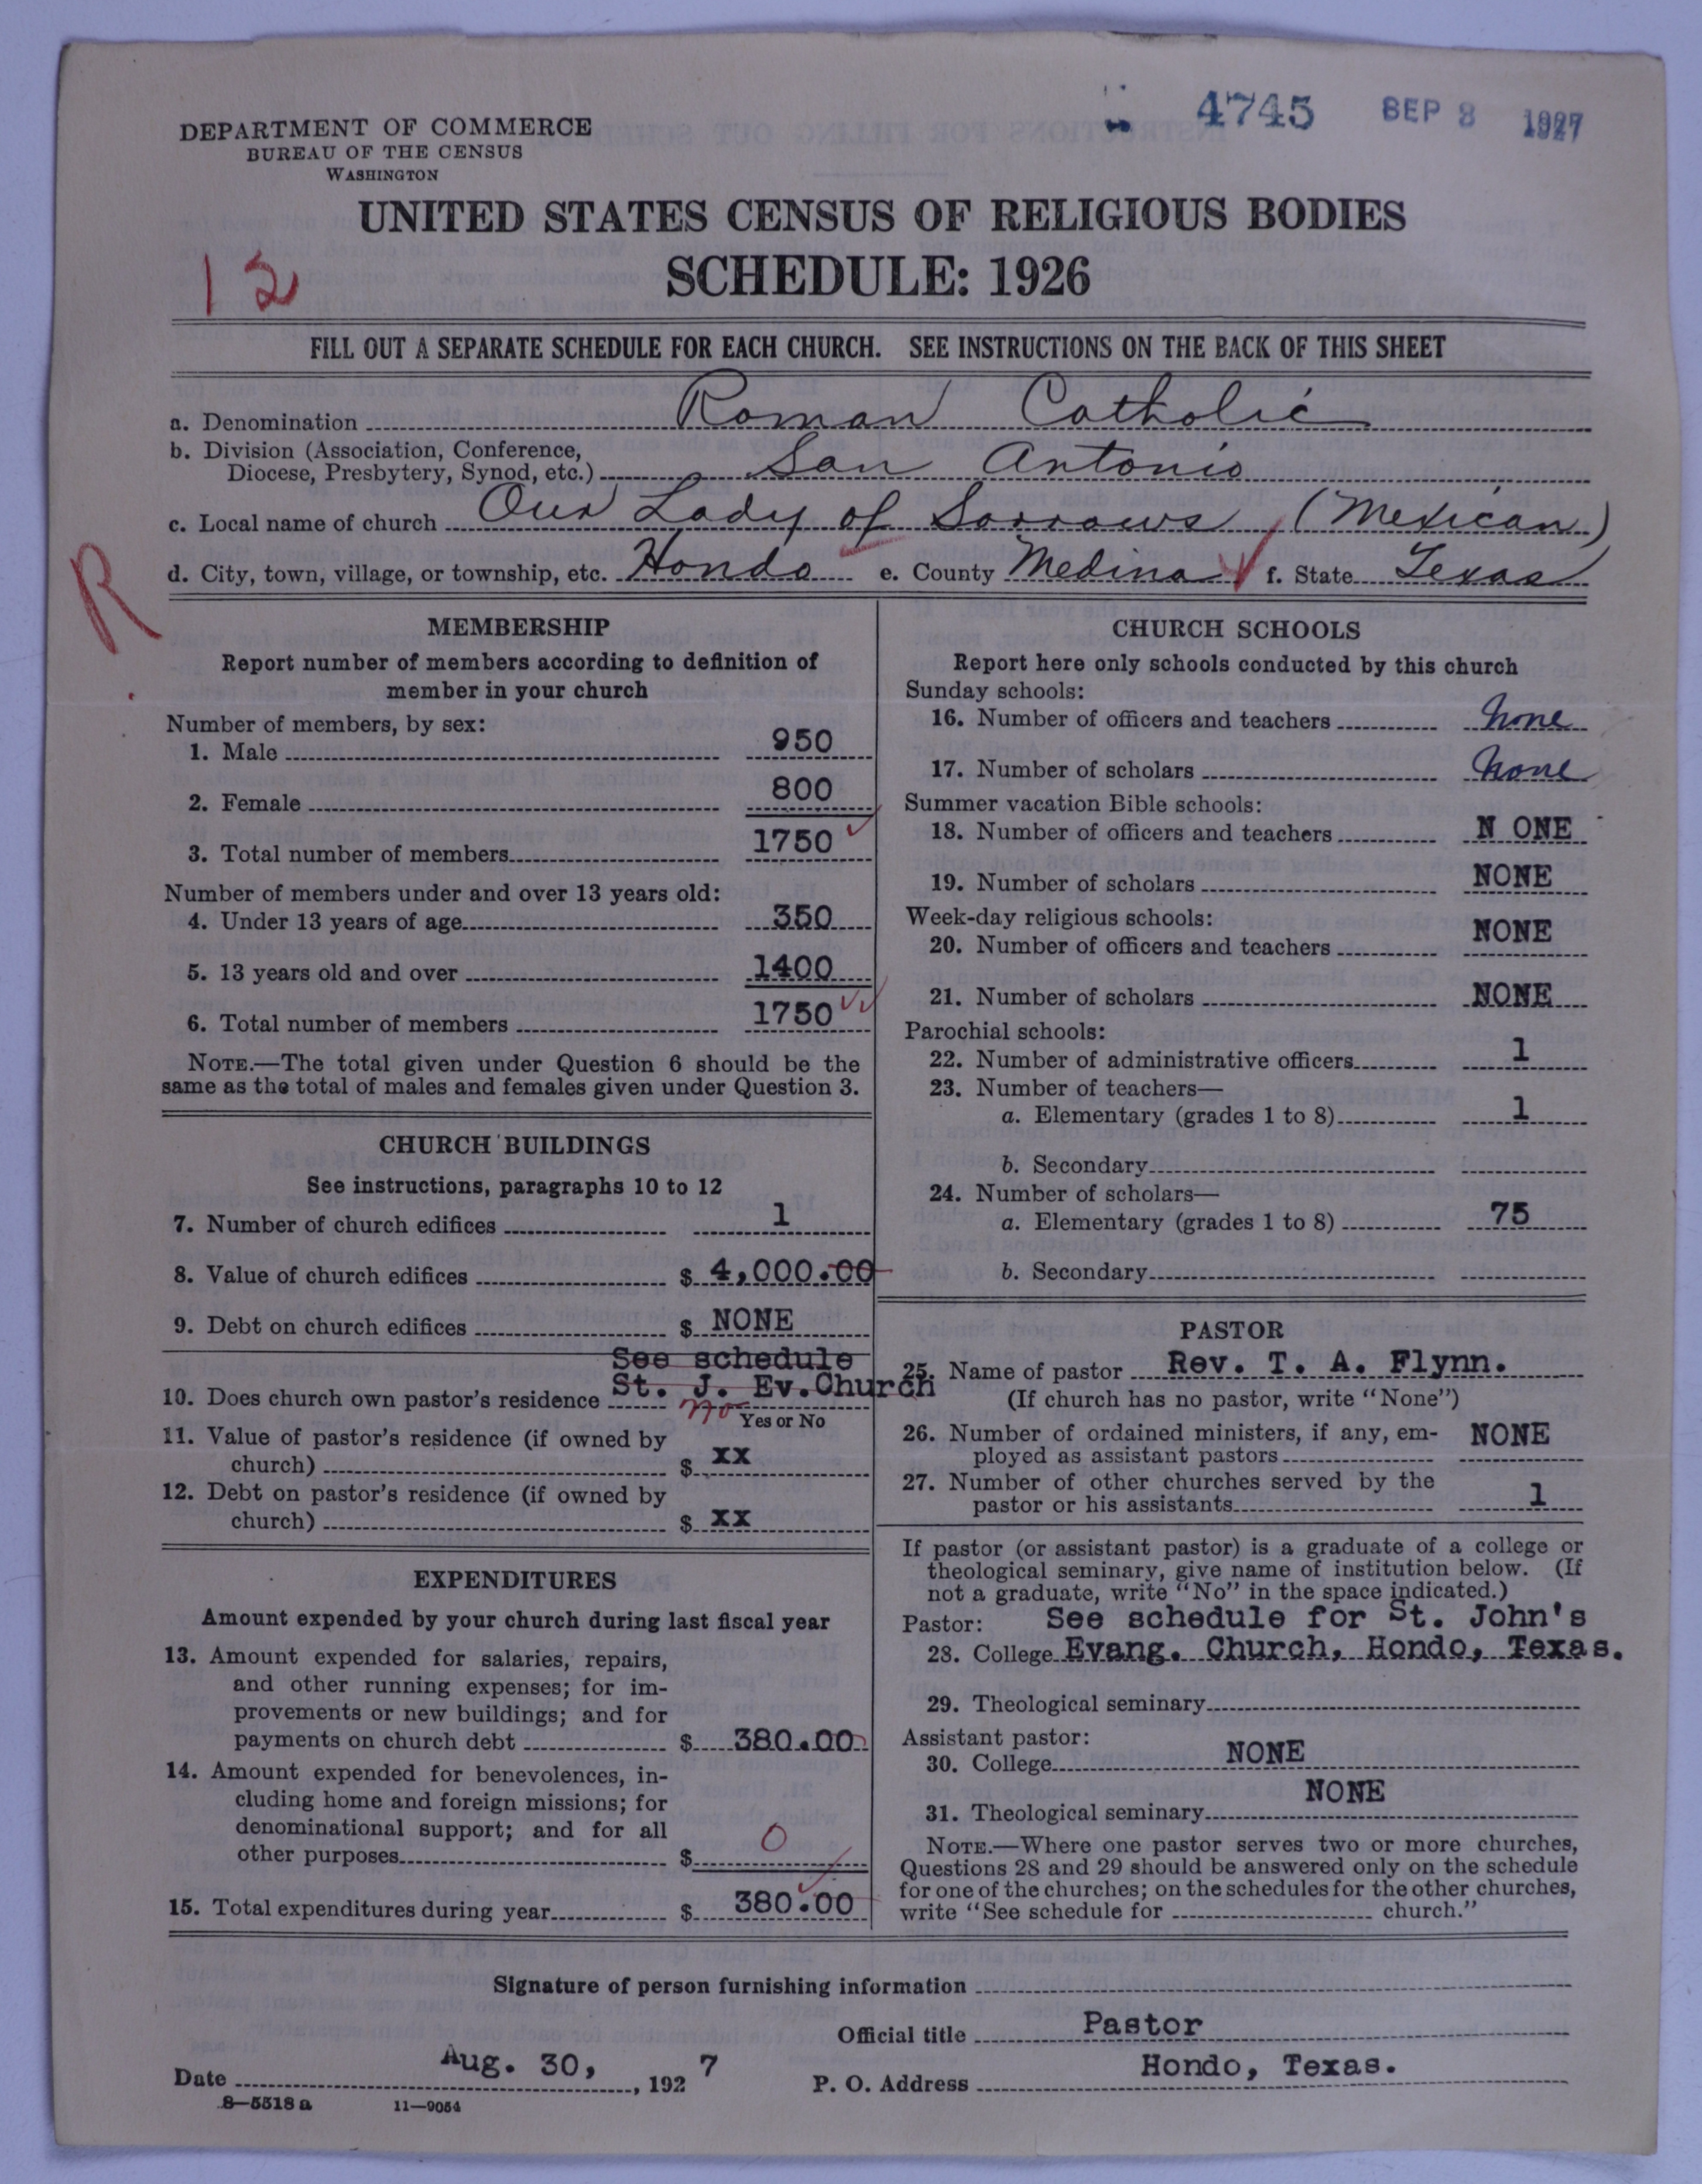 4745 SEP 8 1927
DEPARTMENT OF COMMERCE
BUREAU OF THE CENSUS
WASHINGTON
UNITED STATES CENSUS OF RELIGIOUS BODIES
SCHEDULE: 1926
12
FILL OUT A SEPARATE SCHEDULE FOR EACH CHURCH. SEE INSTRUCTIONS ON THE BACK OF THIS SHEET
a. Denomination Roman Catholic
b. Division (Association, Conference,
Diocese, Presbytery, Synod, etc.) San Antonio
c. Local name of church Our Lady of Sorrows (Mexican)
d. City, town, village, or township, etc. Hondo e. County Medina f. State Texas
R
MEMBERSHIP
Report number of members according to definition of
member in your church
Number of members, by sex:
1. Male 950
2. Female 800
3. Total number of members 1750
Number of members under and over 13 years old:
4. Under 13 years of age 350
5. 13 years old and over 1400
6. Total number of members 1750
NOTE.—The total given under Question 6 should be the
same as the total of males and females given under Question 3.
CHURCH BUILDINGS
See instructions, paragraphs 10 to 12
7. Number of church edifices 1
8. Value of church edifices $ 4,000.00
9. Debt on church edifices $ NONE
See schedule
10. Does church own pastor's residence St. J. Ev. Church
no Yes or No
11. Value of pastor's residence (if owned by
church) $ xx
12. Debt on pastor's residence (if owned by
church) $ xx
EXPENDITURES
Amount expended by your church during last fiscal year
13. Amount expended for salaries, repairs,
and other running expenses; for im-
provements or new buildings; and for
payments on church debt $ 380.00
14. Amount expended for benevolences, in-
cluding home and foreign missions; for
denominational support; and for all
other purposes $ 0
15. Total expenditures during year $ 380.00
CHURCH SCHOOLS
Report here only schools conducted by this church
Sunday schools:
16. Number of officers and teachers None
17. Number of scholars None
Summer vacation Bible schools:
18. Number of officers and teachers N ONE
19. Number of scholars NONE
Week-day religious schools:
20. Number of officers and teachers NONE
21. Number of scholars NONE
Parochial schools:
22. Number of administrative officers 1
23. Number of teachers—
a. Elementary (grades 1 to 8) 1
b. Secondary
24. Number of scholars—
a. Elementary (grades 1 to 8) 75
b. Secondary
PASTOR
25. Name of pastor Rev. T. A. Flynn.
(If church has no pastor, write "None")
26. Number of ordained ministers, if any, em-
ployed as assistant pastors NONE
27. Number of other churches served by the
pastor or his assistants 1
If pastor (or assistant pastor) is a graduate of a college or
theological seminary, give name of institution below. (If
not a graduate, write "No" in the space indicated.)
Pastor: See schedule for St. John's
28. College Evang. Church, Hondo, Texas.
29. Theological seminary
Assistant pastor:
30. College NONE
31. Theological seminary NONE
NOTE.—Where one pastor serves two or more churches,
Questions 28 and 29 should be answered only on the schedule
for one of the churches; on the schedules for the other churches,
write "See schedule for church."
Signature of person furnishing information
Official title Pastor
Date Aug. 30, 1927 P. O. Address Hondo, Texas.
8—5518 a 11—9054